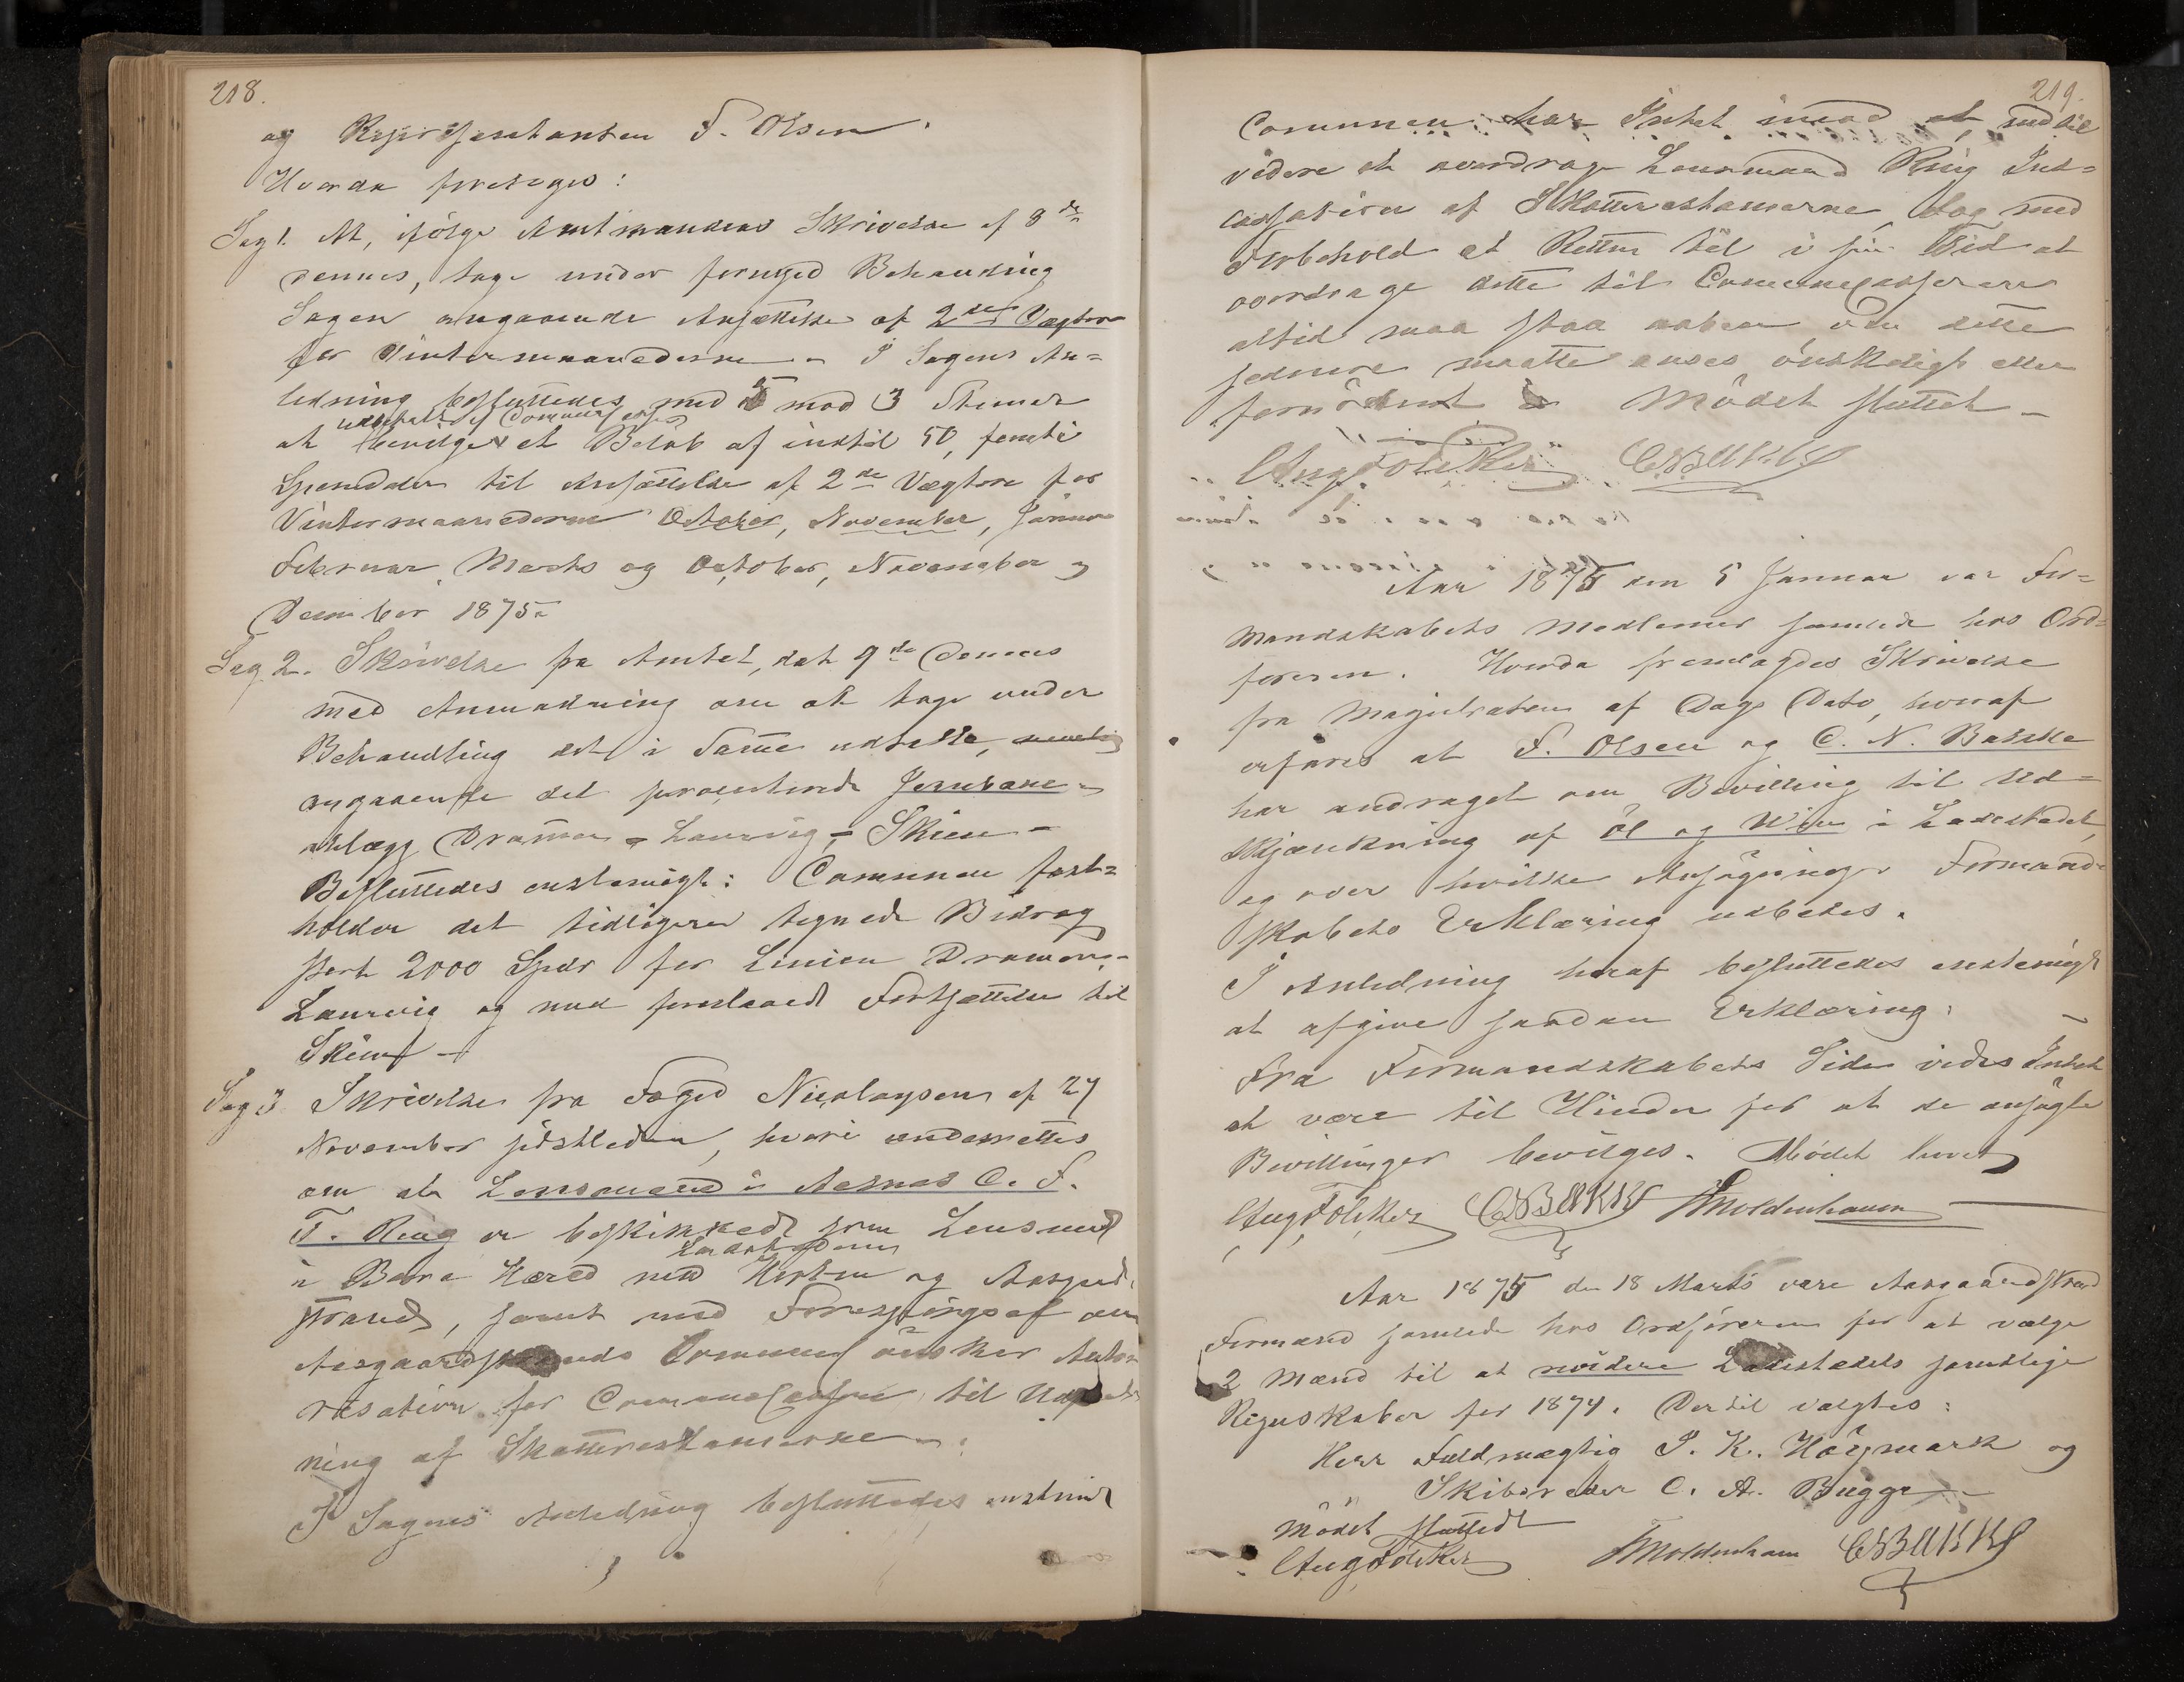 218.
og Repræsentanten F. Olsen.
Hvorda foretoges:
Sag 1. At, ifölge Amtmandens Skrivelse af 8de
dennes, tage under fornyed Behandling
Sagen angaaende Ansættelse af 2den Vægter
for Vintermaanederne – I Sagens An=
ledning besluttedes med 5 mod 3 Stemer
udbetalt af Communecassen
at bevilges et Belöb af indtil 50, femti
Speciedaler til Ansættelse af 2de Vægtere for
Vintermaanederne October, November, Januar
Februar, Marts og October, November og
December 1875.
Sag 2. Skrivelse fra Amtet, dat 9de Dennes
med Anmodning om at tage under
Behandling det i Same udtalte,
angaaende det projecterede Jernbane=
anlæg Dramen – Laurvig – Skien –
Besluttedes enstemigt: Communen fast=
holder det tidligere tegnede Bidrag
stort 2000 Spdr for Linien Dramen –
Laurvig og med foreslaaede Fortsættelse til
Skien –
Sag 3 Skrivelse fra Foged Nicolaysen af 27
November sidstleden, hvori underrettes
om at Lensmand i Aasnæs C. F.
T. Ring er beskikket som Lensmand
Ladestederne
i Borre Hered med Horten og Aasgaard=
strand, samt med Forespörgsel om
Aasgaardstrands Commune önsker Autho
risation for Communecasseren til Inddriv
ning af Skatterestancerne –
I Sagens Anledning besluttedes enstemigt
219.
Communen har Intet imod at indtil
videre at overdrage Lensmand Ring Ind=
cassation af Skatterestancerne, dog med
Forbehold at Retten til i sin Tid at
overdrage dette til Communecasseren
altid maa staa aaben om dette
sednere maatte anses önskeligt eller
fornödent Mödet sluttet –
Aug Fölcker CNBakke
Aar 1875 den 5 Januar var For=
mandskabets Medlemer samlede hos Ord=
föreren. Hvorda fremlagdes Skrivelse
fra Magistraten af Dags Dato, hvoraf
erfares at F. Olsen og C. N. Bakke
har andraget om Bevilling til Ud=
skjænkning af öl og Win i Ladestedet,
og over hvilke Ansögninger Formand=
skabets Erklæring udbedes.
I Anledning heraf besluttedes enstemigt
at afgive saadan Erklæring:
Fra Formandskabets Side vides Intet
at være til Hinder for at de ansögte
Bevillinger bevilges. Mödet hævet
Aug Fölcker CNBakke Moldenhauer
Aar 1875 den 18 Marts vare Aasgaardstrand
Formænd samlede hos Ordföreren for at vælge
2 Mænd til at revidere Ladestedets samtlige
Regnskaber for 1874. Dertil valgtes:
Herr Fuldmægtig P. K. Höymark og
Skibsreder C. A. Bugge –
Mödet sluttedt
Aug Fölcker Moldenhauer CNBakke